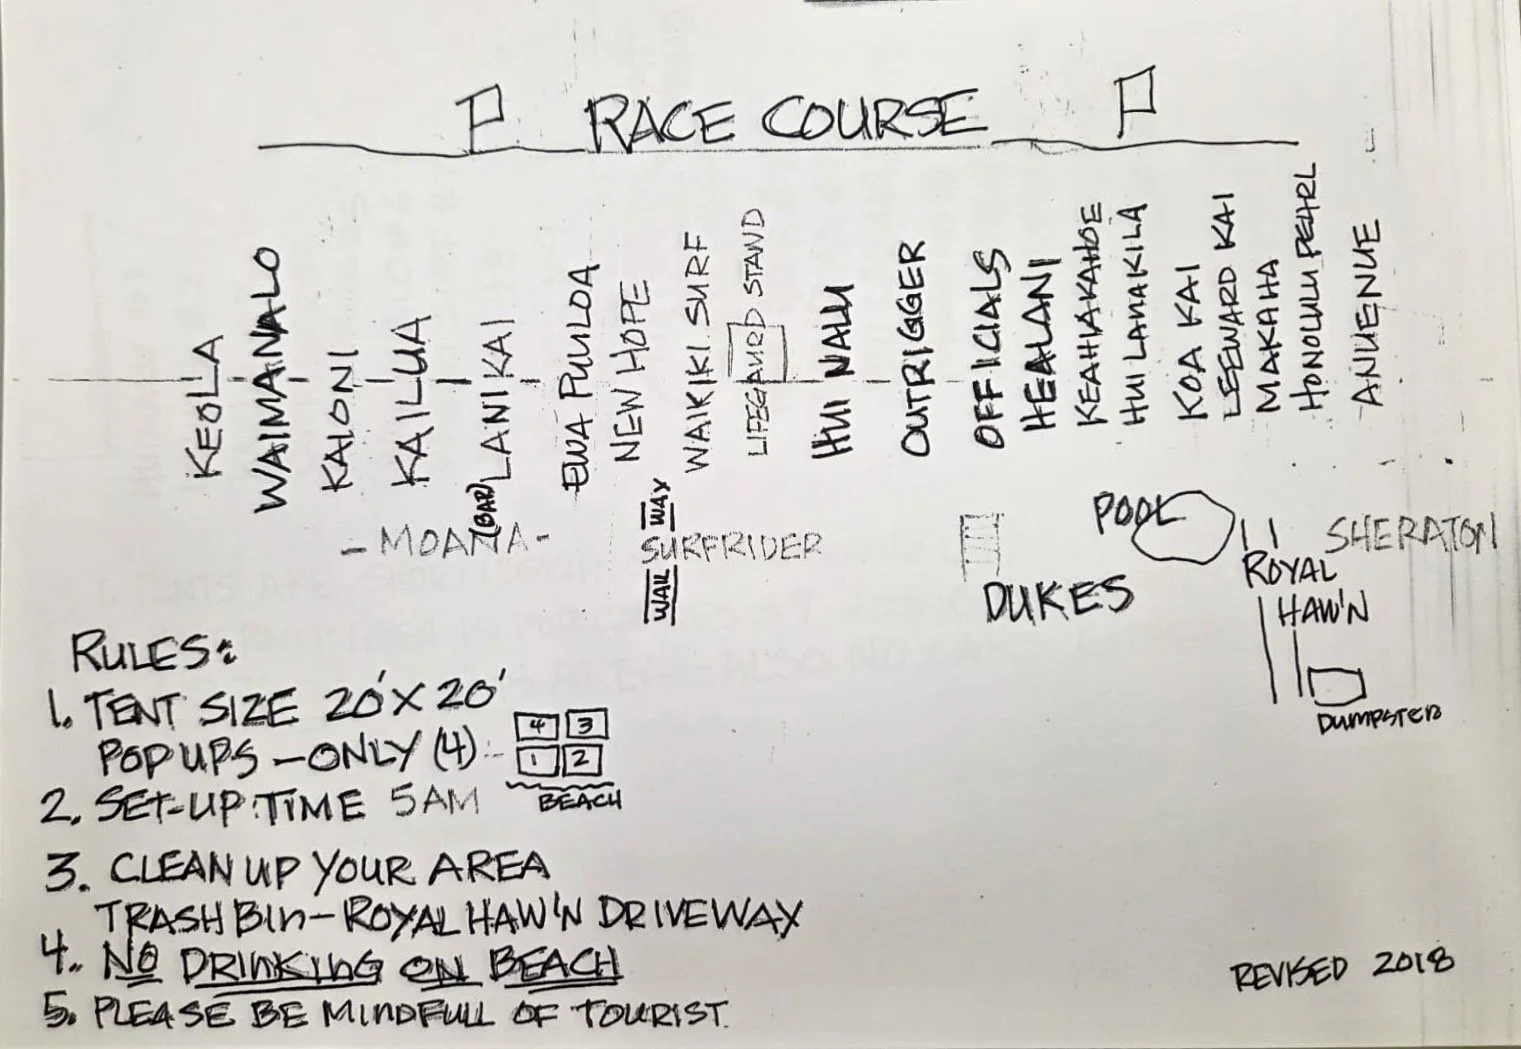 RACE COURSE
KEOLA
WAIMANALO
KALONI
KAILUA
(BAR) LANIKAI
EWA PUULOA
NEW HOPE
WAIKIKI SURF
LIFEGAURD STAND
HUI NALU
OUTRIGGER
OFFICIALS
HEALANI
KEAHIAKAHOE
HUI LANAKILA
KOA KAI
LEEWARD KAI
MAKAHA
HONOLULU PEARL
ANUENUE
- MOANA -
WALK WAY
SURFRIDER
DUKES
POOL
ROYAL
HAW'N
SHERATON
DUMPSTER
RULES:
1. TENT SIZE 20' X 20'
POP UPS - ONLY (4)
4 3
1 2
BEACH
2. SET-UP TIME 5AM
3. CLEAN UP YOUR AREA
TRASH BIN - ROYAL HAW'N DRIVEWAY
4. NO DRINKING ON BEACH
5. PLEASE BE MINDFULL OF TOURIST
REVISED 2018